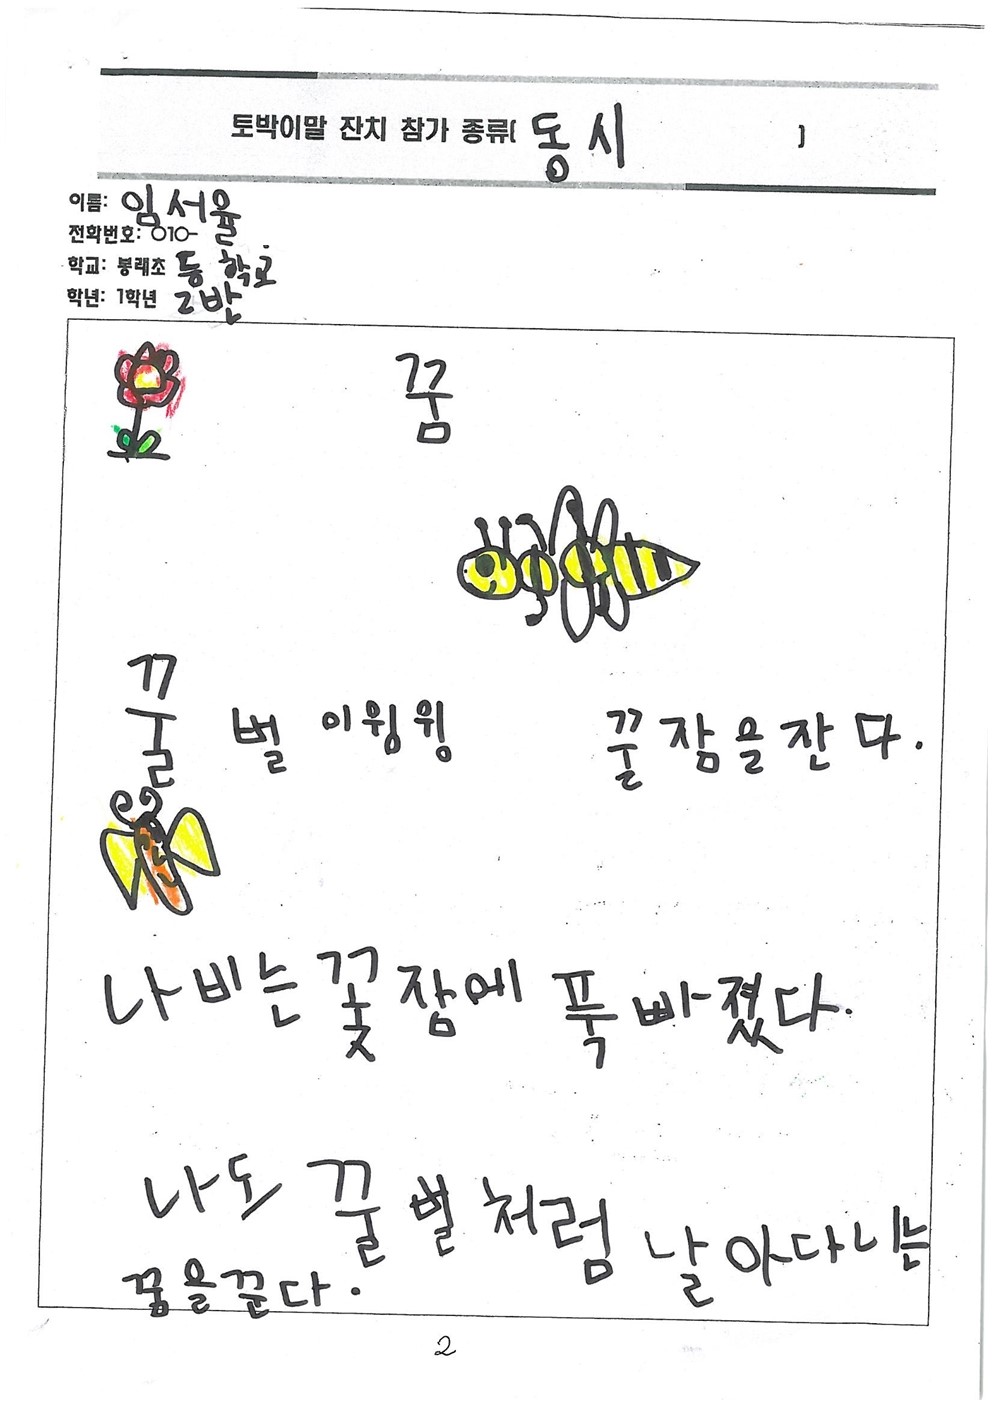 토박이말 잔치 참가 종류( 동시 )
이름: 임서율
전화번호: 010-
학교: 봉래초 등학교
학년: 1학년 2반
꿈
꿀벌이윙윙 꿀잠을잔다.
나비는 꽃잠에 푹빠졌다.
나도 꿀벌처럼 날아다니는
꿈을꾼다.
2